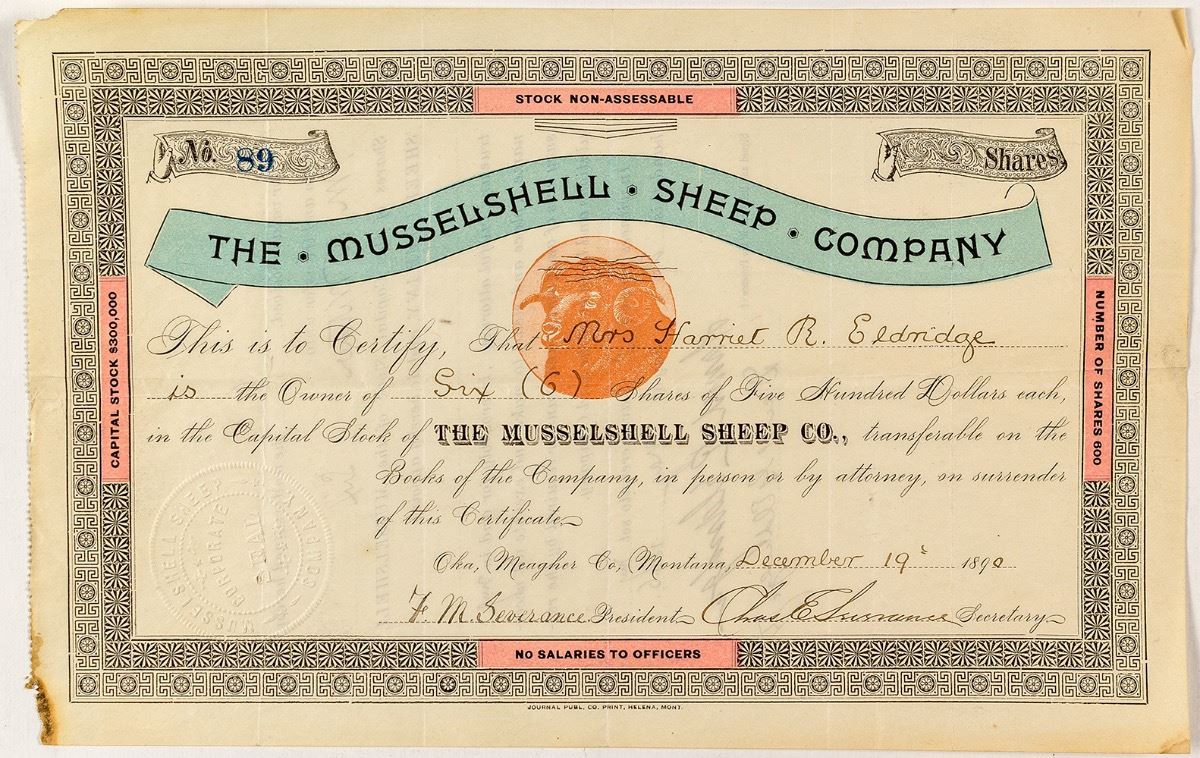 STOCK NON-ASSESSABLE
No. 89
Shares
THE · MUSSELSHELL · SHEEP · COMPANY
CAPITAL STOCK $300,000
NUMBER OF SHARES 600
This is to Certify, That Mrs Harriet R. Eldridge
is the Owner of Six (6) Shares of Five Hundred Dollars each,
in the Capital Stock of THE MUSSELSHELL SHEEP CO., transfriable on the
Books of the Company, in person or by attorney, on surrender
of this Certificate
Oka, Meagher Co, Montana, December 19 1890
F. M. Severance President Chas E Severance Secretary
MUSSELSHELL SHEEP COMPANY
CORPORATE SEAL
NO SALARIES TO OFFICERS
JOURNAL PUBL. CO. PRINT, HELENA, MONT.